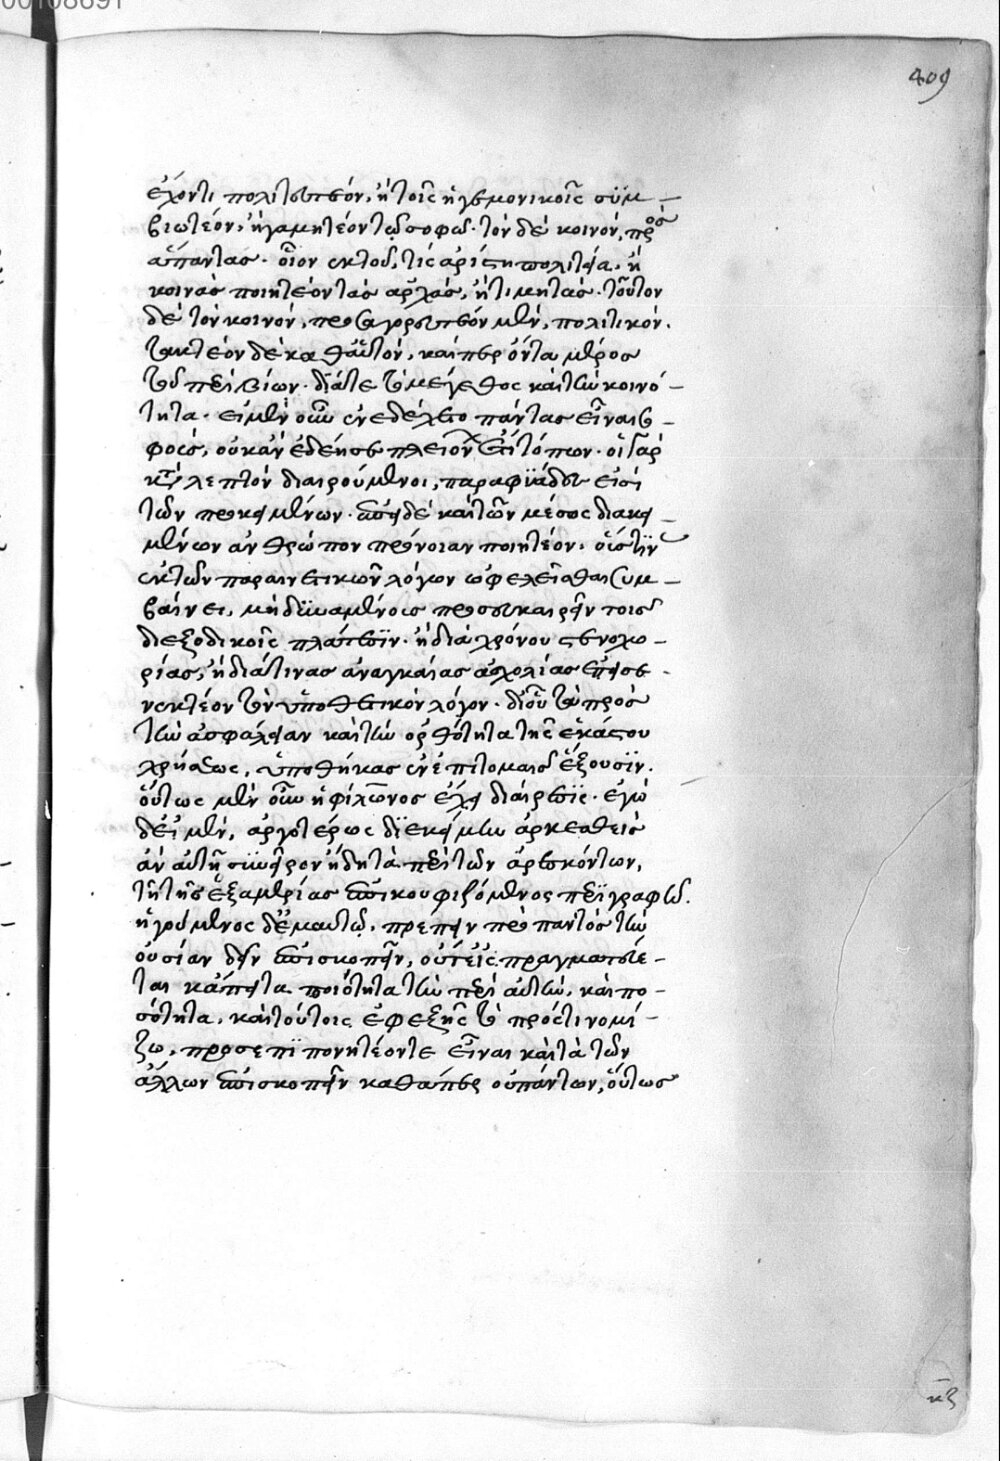 00108691
409
ἔχοντι πολιτευτέον, ἢ τοῖς ἡγεμονικοῖς συμ-
βιωτέον, ἢ γαμητέον τῷ σοφῷ. τὸν δὲ κοινὸν, πρὸς
ἅπαντας. οἷον ἐκ τοῦ, τίς ἀρίστη πολιτεία, ἢ
κοινὰς ποιητέον τὰς ἀρχὰς, ἢ τιμητάς. τοῦτον
δὲ τὸν κοινὸν, προσαγορευτέον μὲν, πολιτικόν.
τακτέον δὲ καθ' αὑτὸν, καίπερ ὄντα μέρος
τοῦ περὶ βίων. διά τε τὸ μέγεθος καὶ τὴν κοινό-
τητα. εἰ μὲν οὖν ἐνεδέχετο πάντας εἶναι σο-
φοὺς, οὐκ ἂν ἐδέησε πλειόνων ἔτι τόπων. οἱ γὰρ
κατὰ λεπτὸν διαιρούμενοι, παραφυάδες εἰσὶ
τῶν προκειμένων. ἐπεὶ δὲ καὶ τῶν μέσως διακει-
μένων ἀνθρώπων πρόνοιαν ποιητέον, οὕστιν
ἐκ τῶν παραινετικῶν λόγων ὠφελεῖσθαι συμ-
βαίνει, μὴ δυναμένοις προσευκαιρεῖν τοῖς
διεξοδικοῖς πλάτεσιν. ἢ διὰ χρόνου στενοχω-
ρίας, ἢ διά τινας ἀναγκαίας ἀσχολίας ἐπεισε-
νεκτέον τὸν ὑποθετικὸν λόγον. δι' οὗ τὰ πρὸς
τὴν ἀσφάλειαν καὶ τὴν ὀρθότητα τῆς ἑκάστου
χρήσεως, ὑποθήκας ἐν ἐπιτομαῖς ἕξουσιν.
οὕτως μὲν οὖν ἡ φίλωνος ἔχει διαίρεσις. ἐγὼ
δ' εἰ μὲν, ἀργοτέρως διεκείμην ἀρκεσθεὶς
ἂν αὐτῇ συνεῖρον ἤδη τὰ περὶ τῶν ἀρεσκόντων,
τῇ τῆς ἑξαμερίας ἐπικουφιζόμενος περιγραφῇ.
ἡγούμενος δ' ἐμαυτῷ, πρέπειν πρὸ παντὸς τὴν
οὐσίαν δεῖν ἐπισκοπεῖν, οὗ τις πραγματεύε-
ται κἄπειτα ποιότητα τὴν περὶ αὐτὴν, καὶ πο-
σότητα, καὶ τούτοις ἐφεξῆς τὸ πρός τι νομί-
ζω, προσεπιπονητέον τε εἶναι καὶ τὰ τῶν
ἄλλων ἐπισκοπεῖν καθάπερ οὐ πάντων, οὕτως